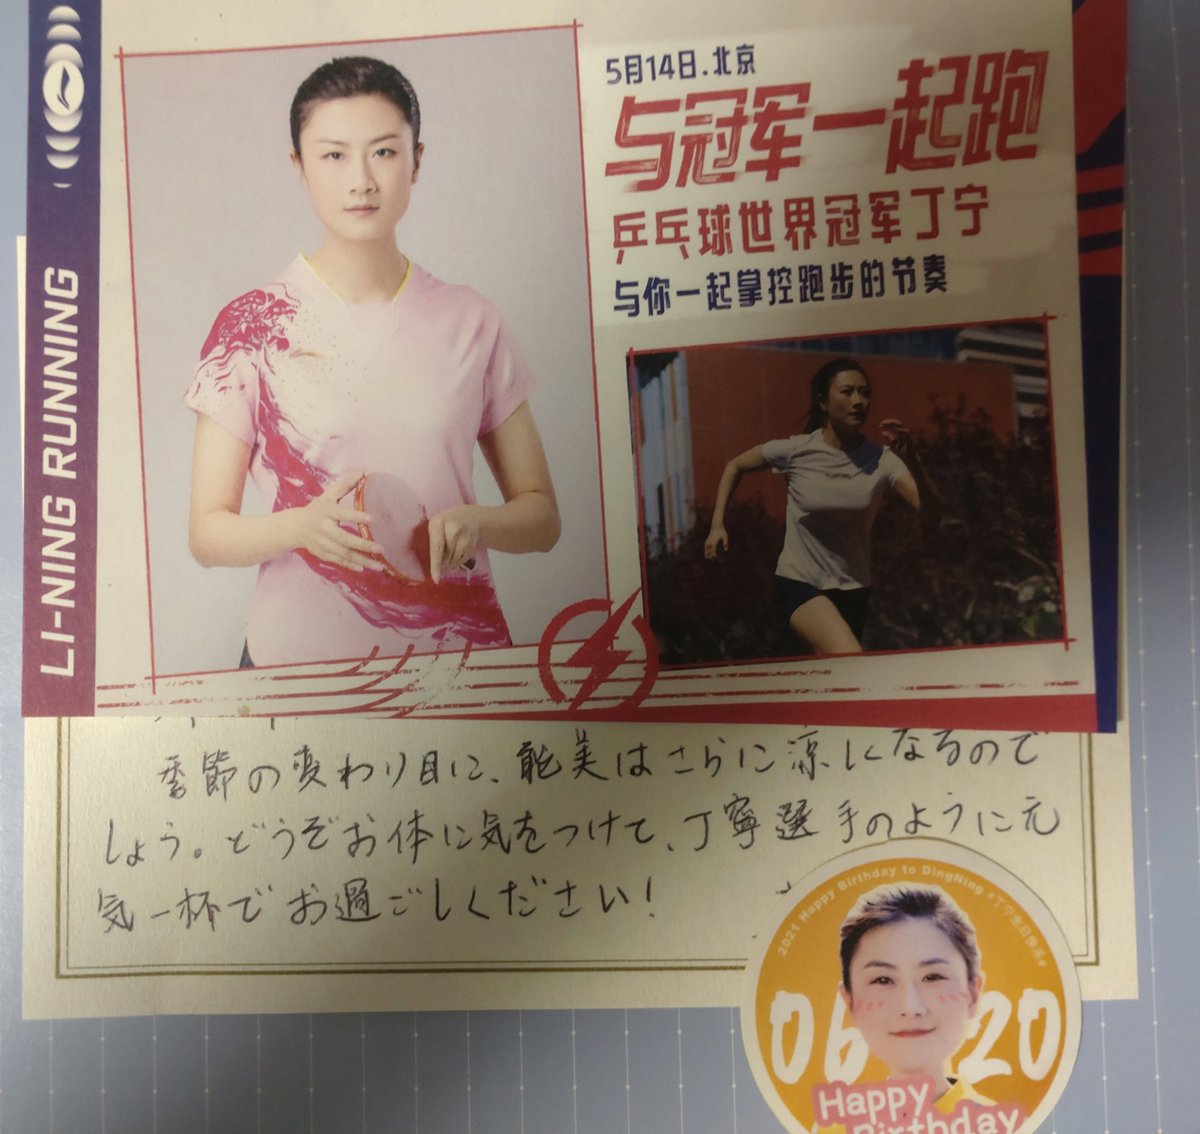 LI-NING RUNNING
5月14日.北京
与冠军一起跑
乒乓球世界冠军丁宁
与你一起掌控跑步的节奏
季節の変わり目に、能美はさらに涼しくなるので
しょう。どうぞお体に気をつけて、丁寧選手のように元
気一杯でお過ごしください!
2021 Happy Birthday to DingNing #丁宁生日快乐#
06 20
Happy
Birthday